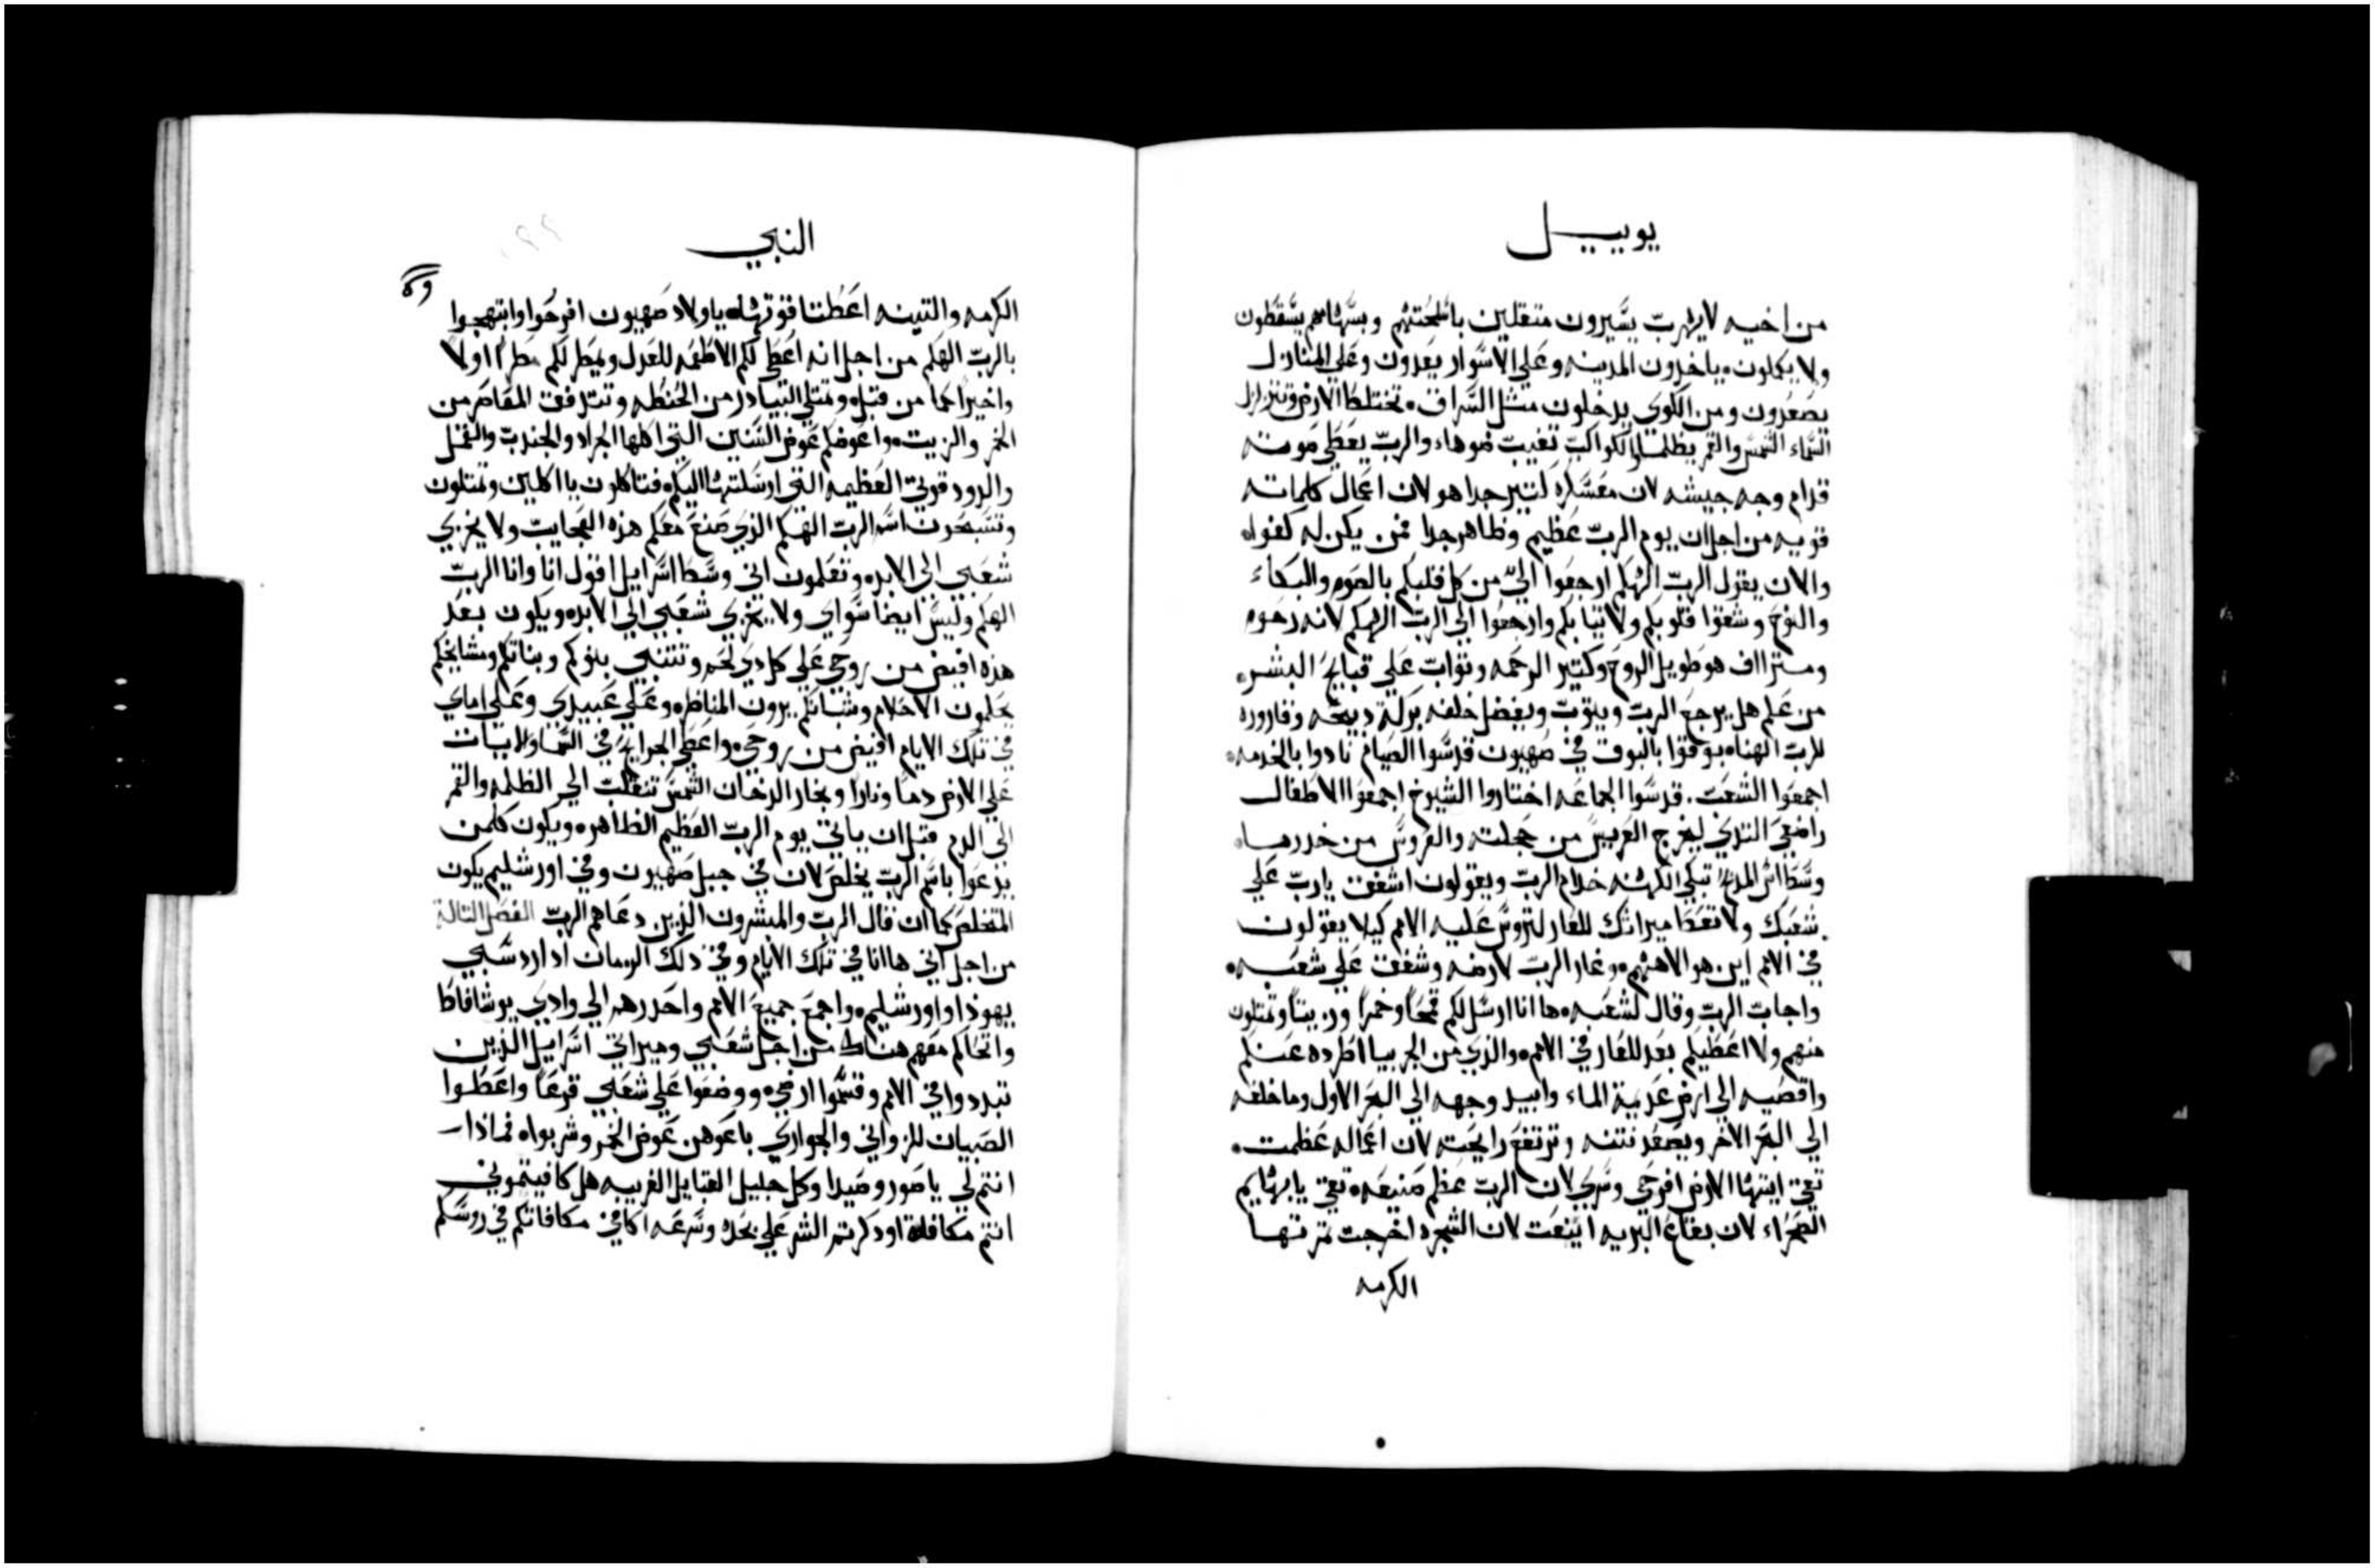 يوييل
من اخيه لا يهرب يسيرون متقلين باسلحتهم وبسهامهم يسقطون
ولا يكملون ياخدون المدينه وعلي الاسوار يعدون وعلي المنازل
يصعدون ومن الكوي يدخلون مثل السراق تختلط الارض وتتزلزل
السماء الشمس والقمر يظلمان الكواكب تغيب ضوها والرب يعطي صوته
قدام وجه جيشه لان معسكره كتير جدا هو لان اعمال كلماته
قويه من اجل ان يوم الرب عظيم وظاهر جدا فمن يكن له كفوا
والان يقول الرب الهكم ارجعوا الي من كل قلبكم بالصوم والبكاء
والنوح وشقوا قلوبكم ولا تيابكم وارجعوا الي الرب الهكم لانه رحوم
ومتراف هو طويل الروح وكتير الرحمه وتواب علي قبايح البشر
من علم هل يرجع الرب ويتوب ويفضل خلفه بركة دبيحه وقاروره
للرب الهنا بوقوا بالبوق في صهيون قدسوا الصيام نادوا بالخدمه
اجمعوا الشعب قدسوا الجماعه اختاروا الشيوخ اجمعوا الاطفال
راضعي التدي ليخرج العريس من حجلته والعروس من خدرها
وسط المدبح تبكي الكهنه خدام الرب ويقولون اشفق يا رب علي
شعبك ولا تعط ميراتك للعار لتروس عليه الامم كيلا يقولون
في الامم اين هو الاههم وغار الرب لارضه وشفق علي شعبه
واجاب الرب وقال لشعبه ها انا ارسل لكم قمحا وخمرا وزيتا وتمتلون
منهم ولا اعطيكم بعد للعار في الامم والذي من الجربيا اطرده عنكم
واقصيه الي ارض عديمة الماء وابيد وجهه الي البحر الاول وما خلفه
الي البحر الاخر ويصعد نتنه وترتفع رايحته لان اعماله عظمت
تقي ايتها الارض افرحي وسري لان الرب عظم صنيعه تقي يا بهايم
الصحراء لان بقاع البريه اينعت لان الشجره اخرجت تمرتها
الكرمه
النبي
الكرمه والتينه اعطتا قوتهما يا ولاد صهيون افرحوا وابتهجوا
بالرب الهكم من اجل انه اعطي لكم الاطعمه للعدل ويمطر لكم مطرا اولا
واخيرا كما من قبل وتمتلي البيادر من الحنطه وتتدفق المعاصر من
الخمر والزيت واعوضكم عوض السنين التي اكلها الجراد والجندب والقمل
والدود قوتي العظيمه التي ارسلتها اليكم فتاكلون يا اكلين وتمتلون
وتسبحون اسم الرب الهكم الذي صنع معكم هذه العجايب ولا يخزي
شعبي الي الابد وتعلمون اني وسط اسرايل اقول انا وانا الرب
الهكم وليس ايضا سواي ولا يخزي شعبي الي الابد ويكون بعد
هذه افيض من روحي علي كل دي لحم وتتنبي بنوكم وبناتكم ومشايخكم
يحلمون الاحلام وشبانكم يرون المناظر وعلي عبيدي وعلي اماي
في تلك الايام افيض من روحي واعطي الجرايح في السما ولايات
علي الارض دما ونارا وبخار الدخان الشمس تنقلب الي الظلمه والقمر
الي الدم قبل ان ياتي يوم الرب العظيم الظاهر ويكون كلمن
يدعوا باسم الرب يخلص لان في جبل صهيون وفي اورشليم يكون
المتخلص كما ان قال الرب والمبشرون الذين دعاهم الرب الفصل التالة
من اجل اني ها انا في تلك الايام وفي ذلك الزمان اد ارد سبي
يهوذا واورشليم واجمع جميع الامم واحدرهم الي وادي يوشافاط
واتحاكم معهم هناك من اجل شعبي وميراتي اسرايل الذين
تبددوا في الامم وقسموا ارضي ووضعوا علي شعبي قرعا واعطوا
الصبيان للزواني والجواري باعوهن عوض الخمر وشربوا فماذا
انتم لي يا صور وصيدا وكل جليل القبايل الغريبه هل كافيتموني
انتم مكافاه او دكرتم الشر علي بحده وسرعه اكافي مكافاتكم في روسكم